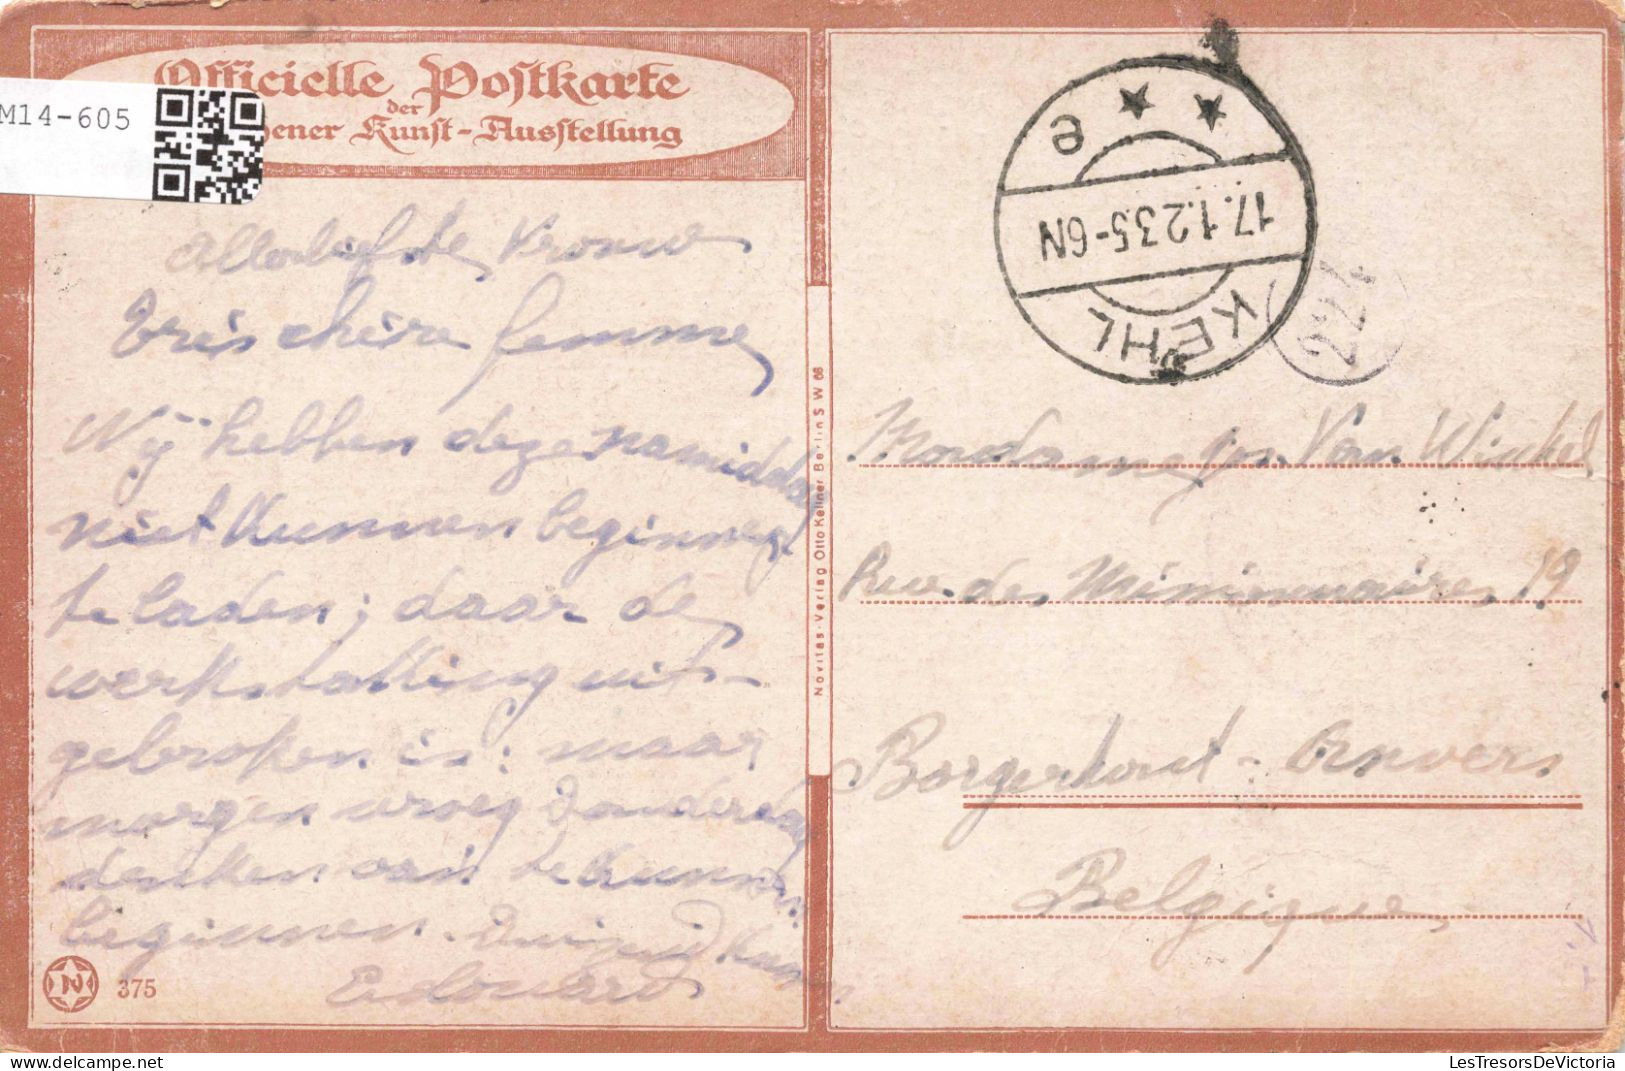 M14-605
Officielle Postkarte
der
hener Kunst-Ausstellung
Allerliefste Vrouw
Très chère femme,
Wij hebben deze namiddag
niet kunnen beginnen
te laden; daar de
werkstalling uit-
gebroken is: maar
morgen vroeg donderdag
denken van te kunnen
beginnen. Duizend kussen
Edouard
N
375
Novitas-Verlag Otto Kellner Berlin SW 68
e
17.1.23.5-6N
KEHL
221
Madame Jos. Van Winkel
Rue des Missionnaires, 19
Borgerhout - Anvers
Belgique,
LesTresorsDeVictoria